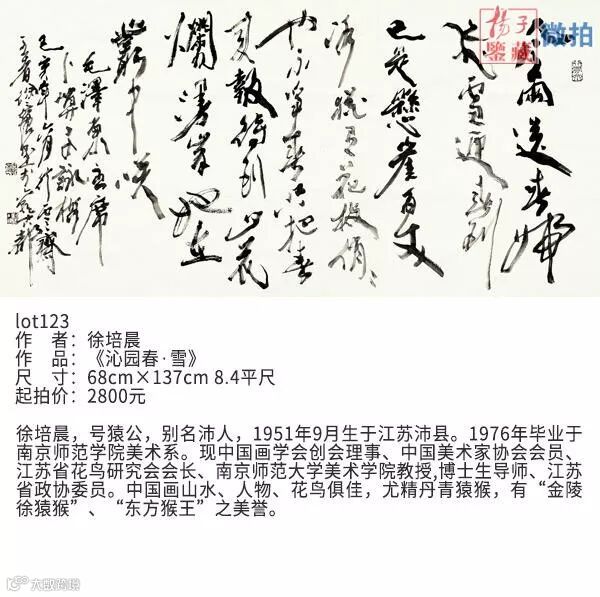 揚子
鑒藏
微拍
風雨送春歸
飛雪迎春到
已是懸崖百丈
冰猶有花枝俏俏
也不爭春只把春
来報待到山花
爛漫時她在
叢中笑
毛澤東主席
卜算子詠梅
lot123
作 者：徐培晨
作 品：《沁园春·雪》
尺 寸：68cm×137cm 8.4平尺
起拍价：2800元
徐培晨，号猿公，别名沛人，1951年9月生于江苏沛县。1976年毕业于
南京师范学院美术系。现中国画学会创会理事、中国美术家协会会员、
江苏省花鸟研究会会长、南京师范大学美术学院教授,博士生导师、江苏
省政协委员。中国画山水、人物、花鸟俱佳，尤精丹青猿猴，有“金陵
徐猿猴”、“东方猴王”之美誉。
大歐跨境